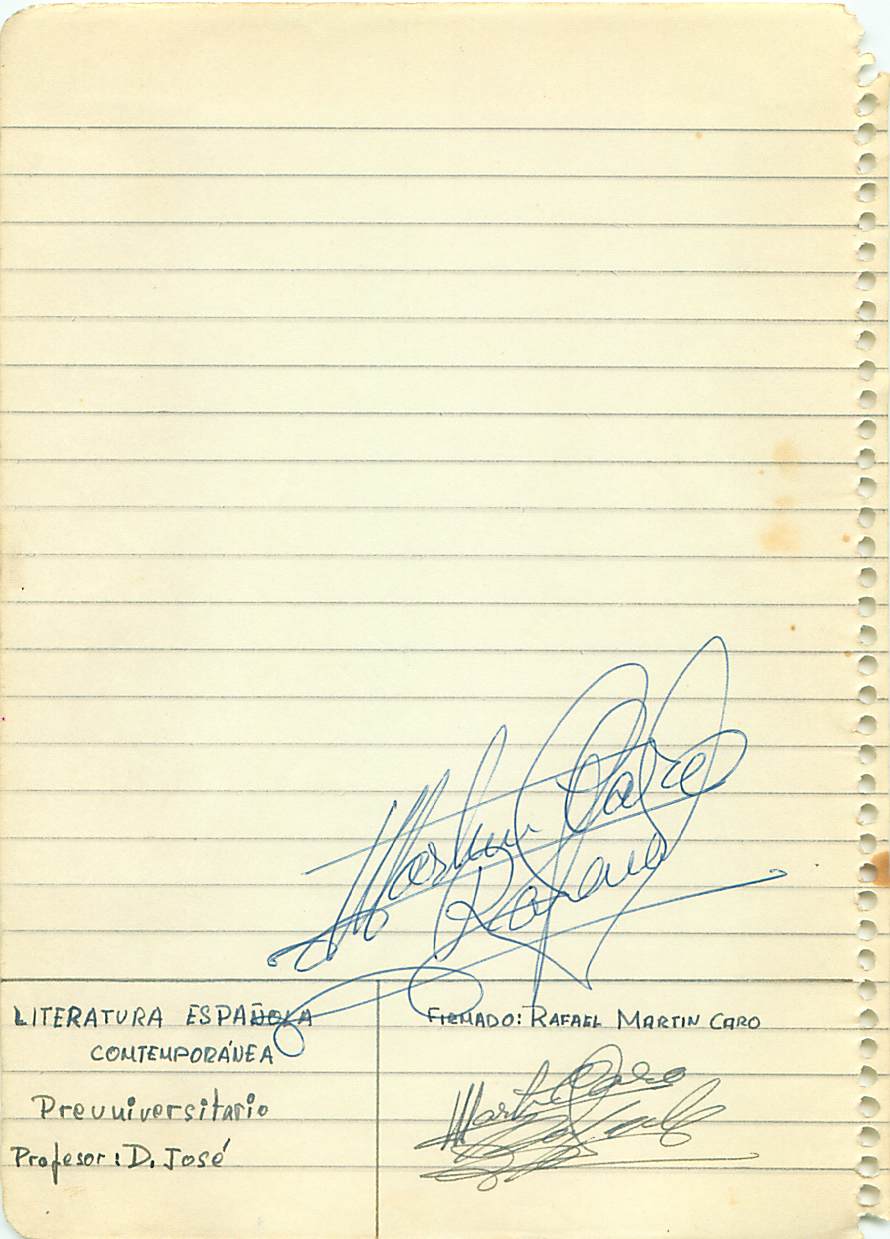 Martin Caro
Rafael
LITERATURA ESPAÑOLA
CONTEMPORÁNEA
Preuniversitario
Profesor: D. José
FIRMADO: RAFAEL MARTIN CARO
Martin Caro
Rafael